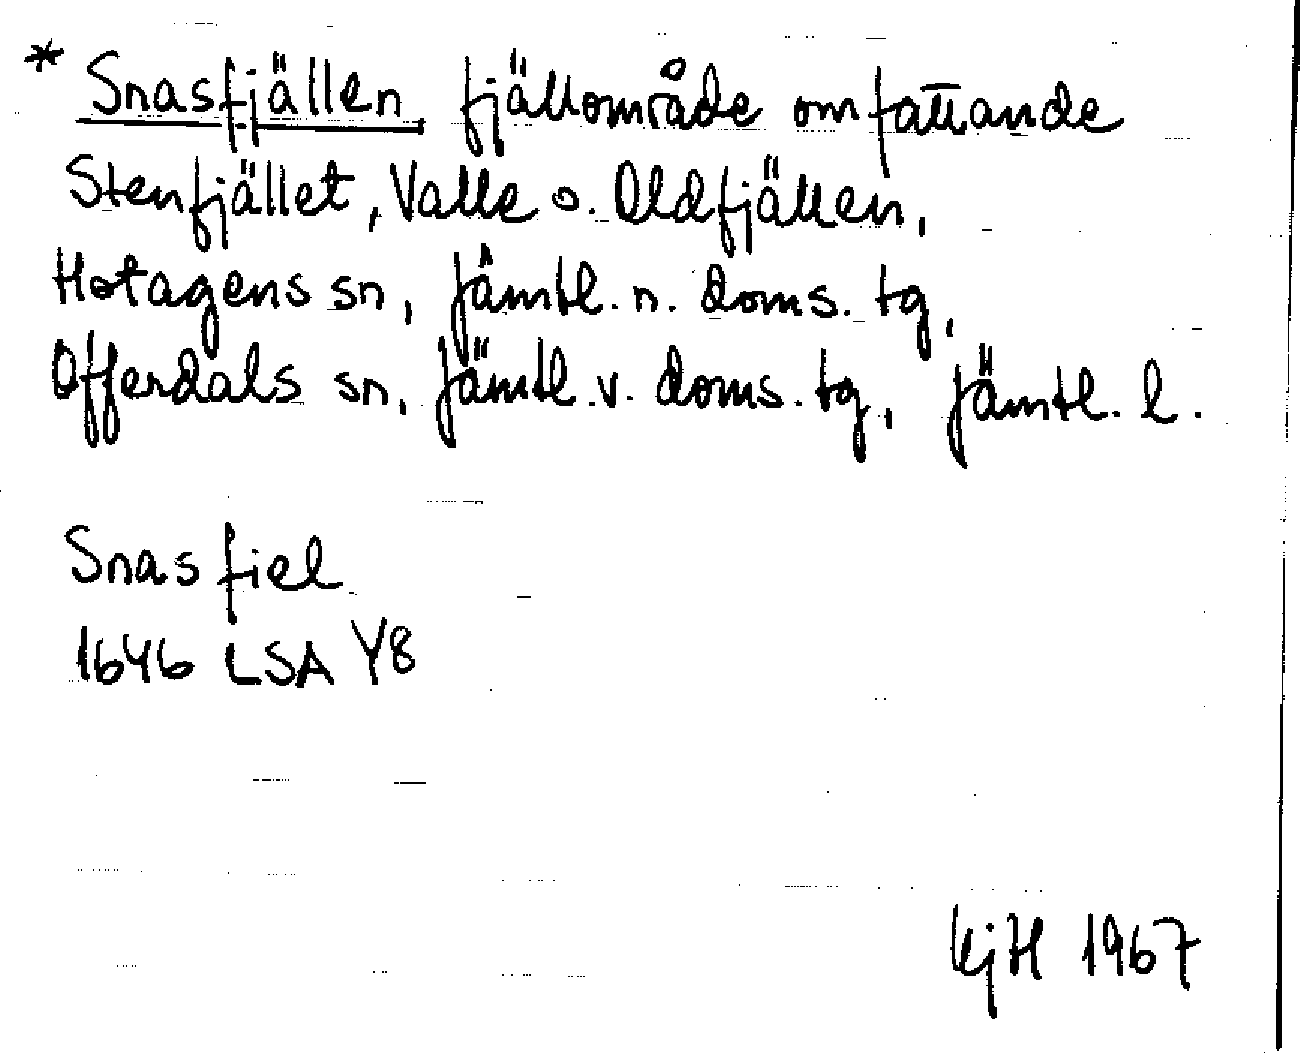 * Snasfjällen fjällområde omfattande
Stenfjället, Valle o. Oldfjällen,
Hotagens sn, Jämtl. n. doms. tg,
Offerdals sn, Jämtl. v. doms. tg, Jämtl. l.
Snasfiel
1646 LSA Y8
KjH 1967